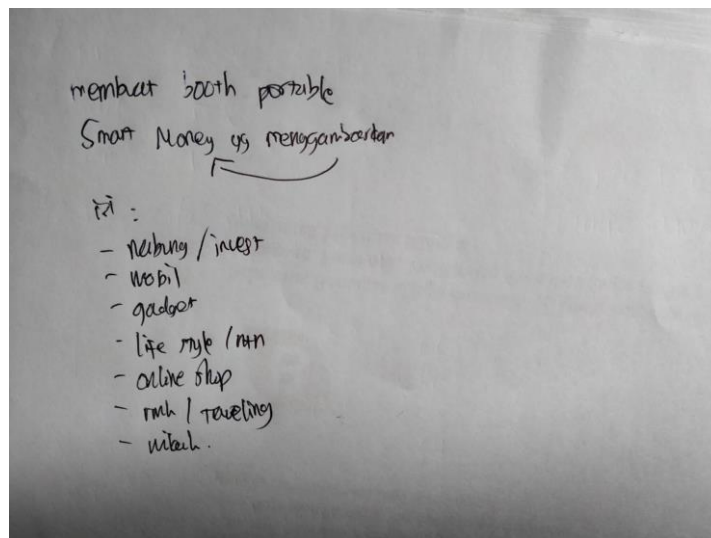 membuat booth portable
Smart Money yg menggambarkan
- nabung / invest
- mobil
- gadget
- life style / ntn
- online shop
- rmh / Traveling
- nikah.